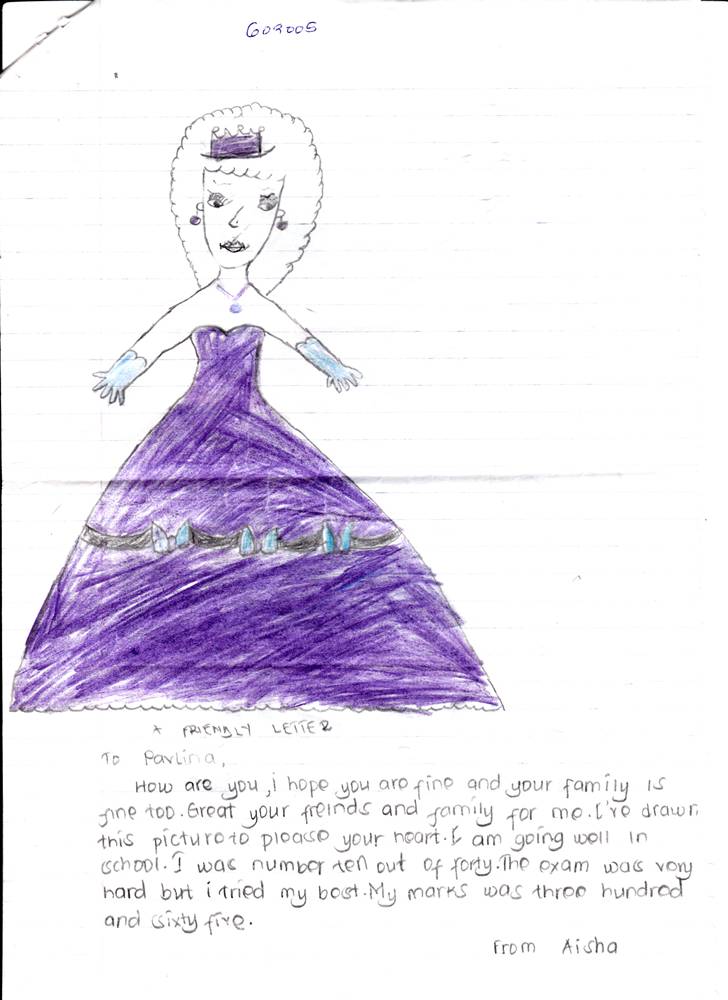 602005
A FRIENDLY LETTER
To Pavlina,
How are you, i hope you are fine and your family is
fine too. Great your freinds and family for me. I've drawn
this picture to please your heart. I am going well in
school. I was number ten out of forty. The exam was very
hard but i tried my best. My marks was three hundred
and sixty five.
From Aisha